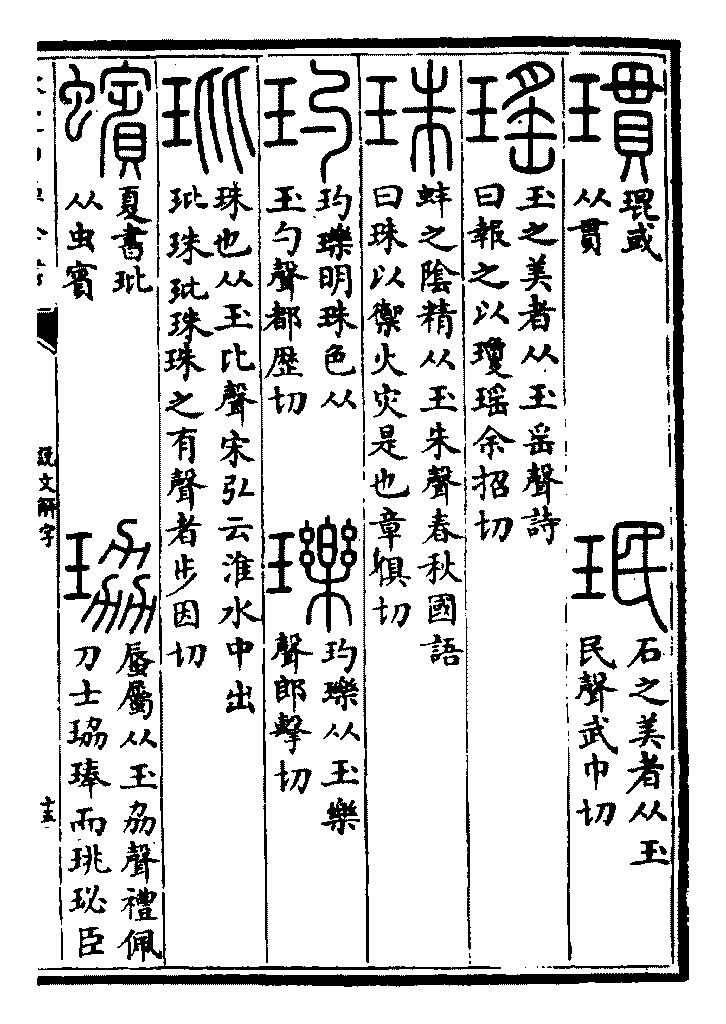 瑻
琨或
从貫
珉
石之美者从玉
民聲武巾切
瑤
玉之美者从玉䍃聲詩
曰報之以瓊瑤余招切
珠
蚌之陰精从玉朱聲春秋國語
曰珠以禦火灾是也章俱切
玓
玓瓅明珠色从
玉勺聲都歴切
瓅
玓瓅从玉樂
聲郎擊切
玭
珠也从玉比聲宋弘云淮水中出
玭珠玭珠珠之有聲者步因切
蠙
夏書玭
从虫賓
珕
蜃屬从玉劦聲禮佩
刀士珕琫而珧珌臣
説文解字